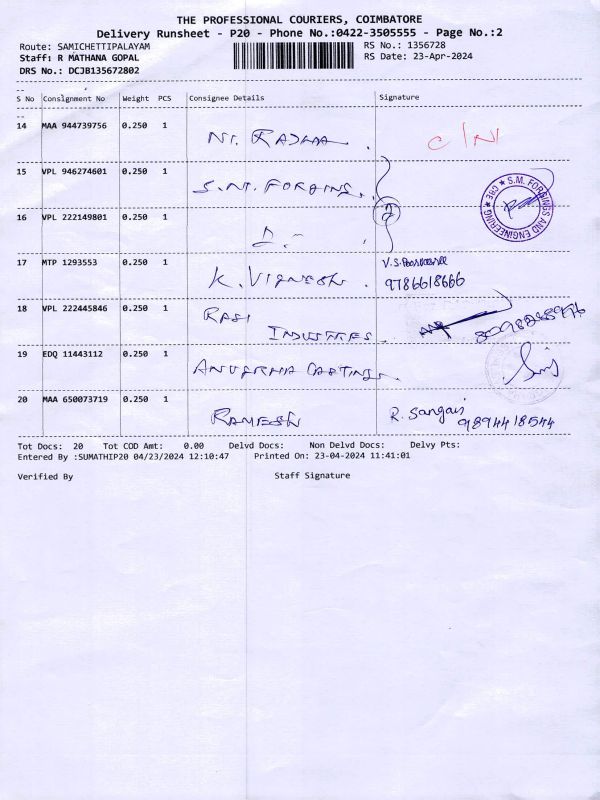 THE PROFESSIONAL COURIERS, COIMBATORE
Delivery Runsheet - P20 - Phone No.:0422-3505555 - Page No.:2
Route: SAMICHETTIPALAYAM RS No.: 1356728
Staff: R MATHANA GOPAL RS Date: 23-Apr-2024
DRS No.: DCJB135672802
S No Consignment No Weight PCS Consignee Details Signature
14 MAA 944739756 0.250 1 C/N
15 VPL 946274601 0.250 1 S.M. FORGINS. S.M. FORGINGS AND ENGINEERING CBE
16 VPL 222149801 0.250 1
17 MTP 1293553 0.250 1 K. VIGNESH.
9786618666
18 VPL 222445846 0.250 1 RASI
INDUSTRIES.
19 EDQ 11443112 0.250 1 ANUGRHA CASTING.
20 MAA 650073719 0.250 1 RAMESH R. Sangar
9894418544
Tot Docs: 20 Tot COD Amt: 0.00 Delvd Docs: Non Delvd Docs: Delvy Pts:
Entered By :SUMATHIP20 04/23/2024 12:10:47 Printed On: 23-04-2024 11:41:01
Verified By Staff Signature